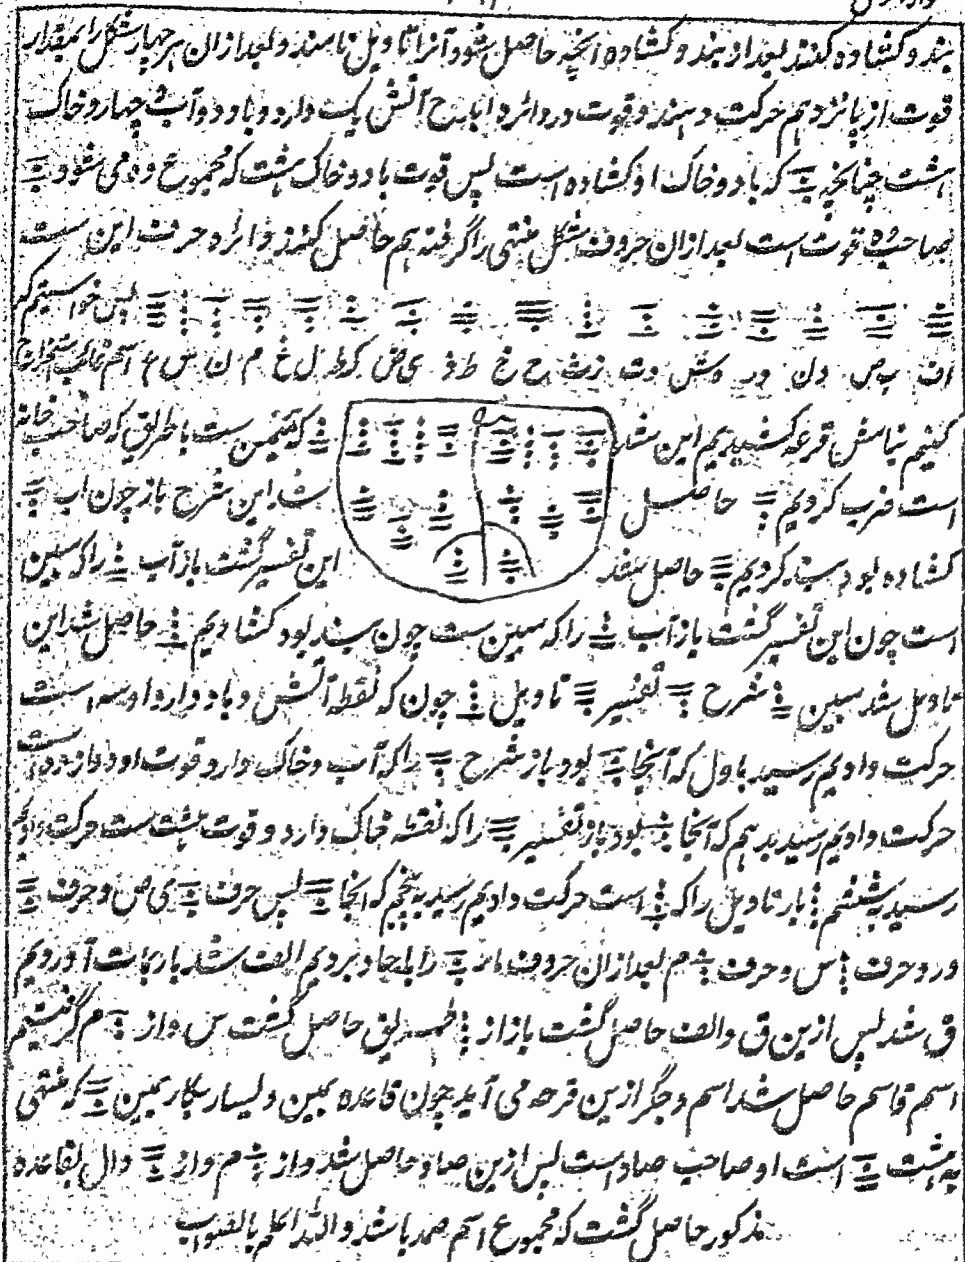 بند و کشاده کنند بعد از بند و کشاده انچه حاصل شود آنرا تاویل نامند و بعد ازان هر چهار شکل را بمقدار
قوت از پانزدهم حرکت دهند و قوت در دائره ابدح آتش یک دارد و باد دو آب چهار و خاک
هشت چنانچه که باد و خاک او کشاده است پس قوت باد و خاک هشت که مجموع وه می شود
صاحب ده قوت است بعد ازان حروف شکل منتهی را گرفته اسم حاصل کنند و دائره حرف این ست
پس خواستیم که
ان ب ص د ن و ر ه ش و ت ز ث ح خ ط ذ ی ض ک ظ ل غ م ن س ع اسم
کنیم بنامش قرعه کشیدیم این شد که متیمن ست با طریق که صاحب خانه
است ضرب کردیم حاصل شد این شرح باز چون آب
کشاده بود بند کردیم حاصل شد این تفسیر گشت باز آب را که سبین
است چون این تفسیر گشت باز آب را که سبین ست چون بند بود کشادیم حاصل شد این
تاویل شد سبین شرح تفسیر تاویل چون که نقطه آتش و باد دارد او سه است
حرکت دادیم رسید باول که آنجا بود باز شرح را که آب و خاک دارد قوت او دوازده است
حرکت دادیم رسید بدهم که آنجا بود باز تفسیر را که نقطه خاک دارد و قوت هشت ست حرکت دادیم
رسید بششم باز تاویل را که است حرکت دادیم رسید به پنجم که انجا پس حرف ی ض و حرف
و ر و حرف س و حرف م بعد ازان حروف از را بابجاد بردیم الف شد باز بمات آوردیم
ق شد پس ازین ق و الف حاصل گشت باز از حاصل گشت س و از م گرفتیم
اسم قاسم حاصل شد اسم دیگر ازین قرعه می آید چون قاعده یمین و یسار بکار بریم که منتهی
به هشت است او صاحب صاد است پس ازین صاد حاصل شد و از م و از دال بقاعده
مذکور حاصل گشت که مجموع اسم صمد باشد والله اعلم بالصواب